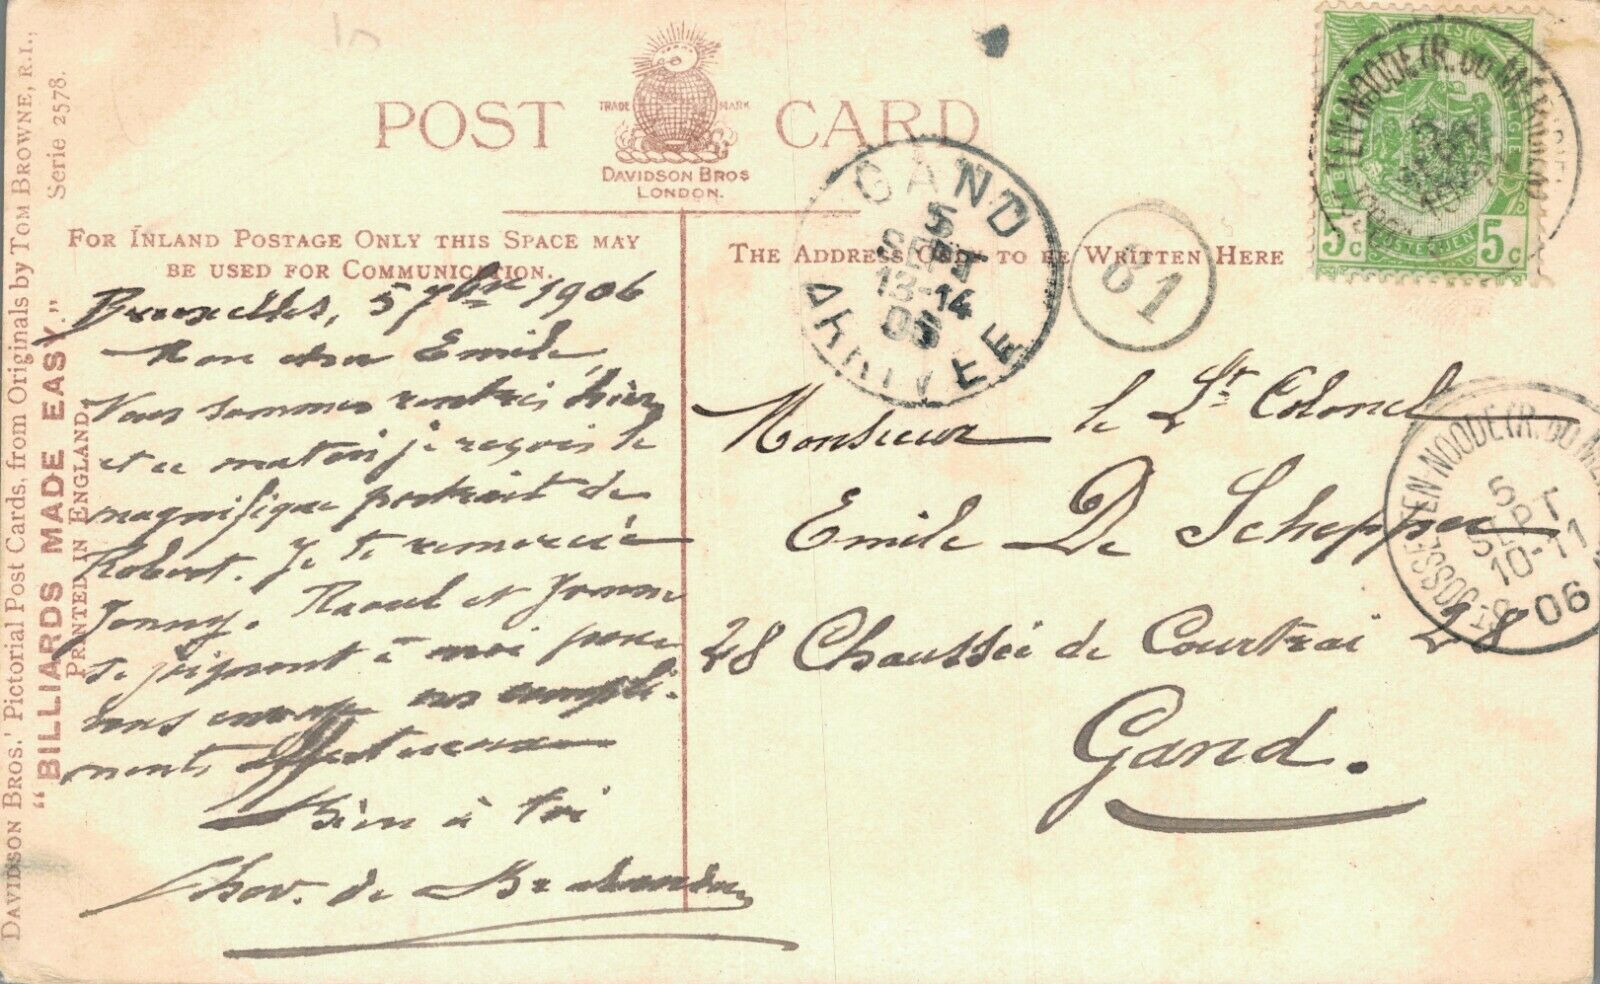 POST CARD
TRADE MARK
DAVIDSON BROS
LONDON.
FOR INLAND POSTAGE ONLY THIS SPACE MAY
BE USED FOR COMMUNICATION.
THE ADDRESS ONLY TO BE WRITTEN HERE
DAVIDSON BROS.' Pictorial Post Cards, from Originals by TOM BROWNE, R.I.,
"BILLIARDS MADE EASY." Serie 2578.
PRINTED IN ENGLAND.
Bruxelles, 5 7bre 1906
Mon cher Emile,
Nous sommes rentrés hier,
et ce matin je reçois le
magnifique portrait de
Robert. Je te remercie
Jenny. Raoul et Yvonne
se joignent à moi pour
vous envoyer nos compli-
ments affectueux
Bien à toi
Chev. de
GAND
5
SEPT
13-14
06
ARRIVÉE
81
Monsieur le Lt Colonel
Emile De Schepper
28 Chaussée de Courtrai 28
Gand.
5c 5c
ST-JOSSE-TEN-NOODE (R. DU MÉRIDIEN)
5
SEPT
10-11
06